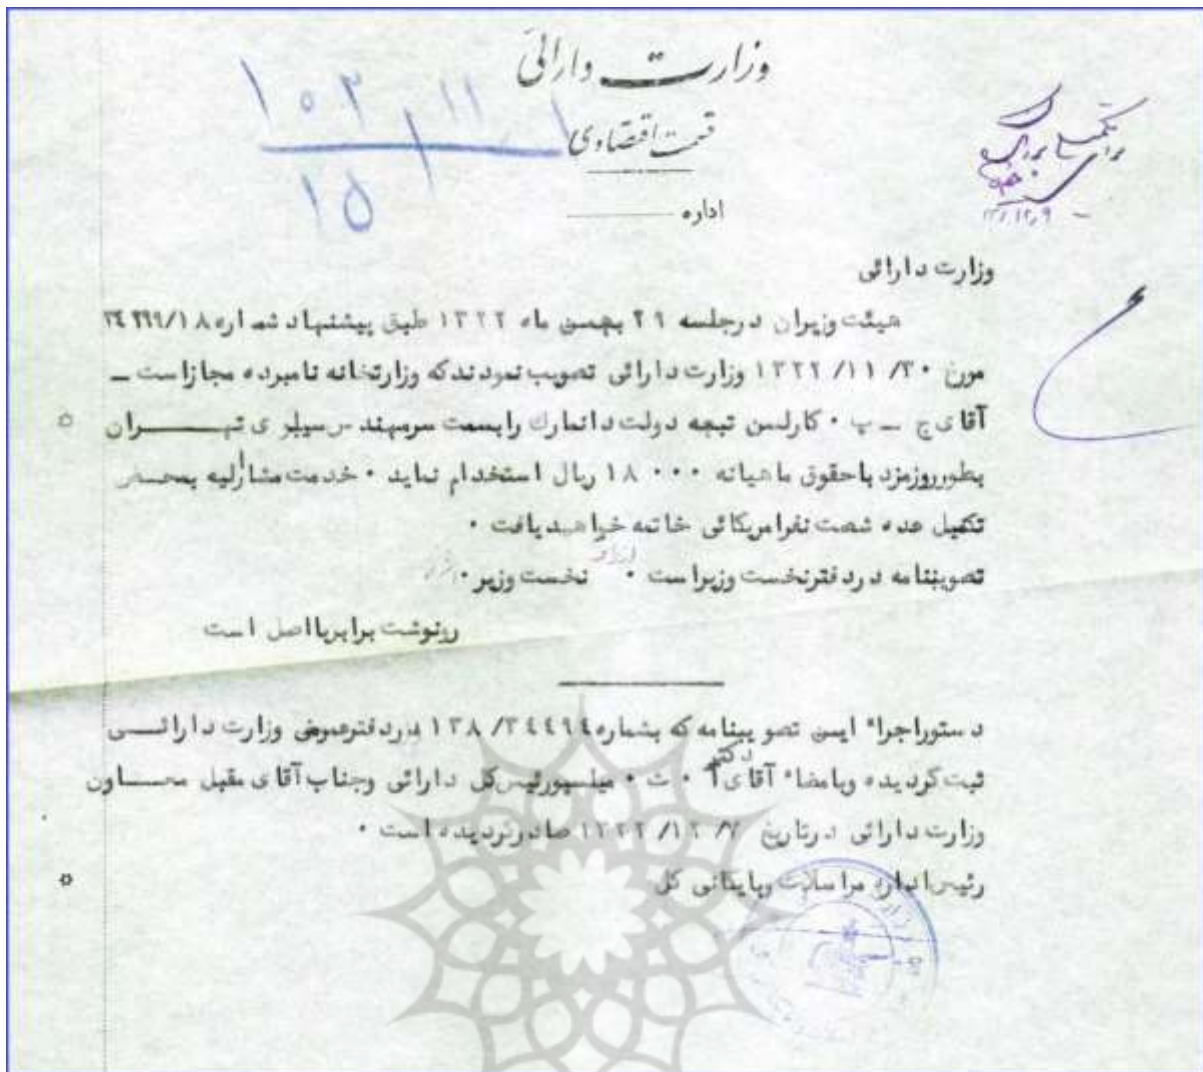 وزارت دارائی
قسمت اقتصادی
اداره
۱۰۳ ۱۱
۱۵
برای تکمیل
وزارت دارائی
هیئت وزیران درجلسه ۲۹ بهمن ماه ۱۳۲۲ طبق پیشنهاد شماره
مورخ ۳۰/ ۱۱/ ۱۳۲۲ وزارت دارائی تصویب نمودندکه وزارتخانه نامبرده مجازاست ـ
آقای ج ـ پ ۰ کارلسن تبعه دولت دانمارك رابسمت سرمهندس سیلوی تهـــران
بطورروزمزد باحقوق ماهیانه ۱۸۰۰۰ ریال استخدام نماید ۰ خدمت مشارالیه بمحض
تکمیل عده شصت نفرامریکائی خاتمه خواهدیافت ۰
تصویبنامه دردفترنخست وزیراست ۰ نخست وزیر ۰
رونوشت برابربااصل است
دستوراجراء این تصویبنامه که بشماره ۳۴۴۹۴/ ۱۳۸ دردفترعمومی وزارت دارائـــی
ثبت گردیده وبامضاء آقای دکتر آ ۰ ت ۰ میلسپورئیس کل دارائی وجناب آقای مقبل معـــاون
وزارت دارائی درتاریخ ۷/ ۱۲/ ۱۳۲۲ صادرگردیده است ۰
رئیس اداره مراسلات وبایگانی کل